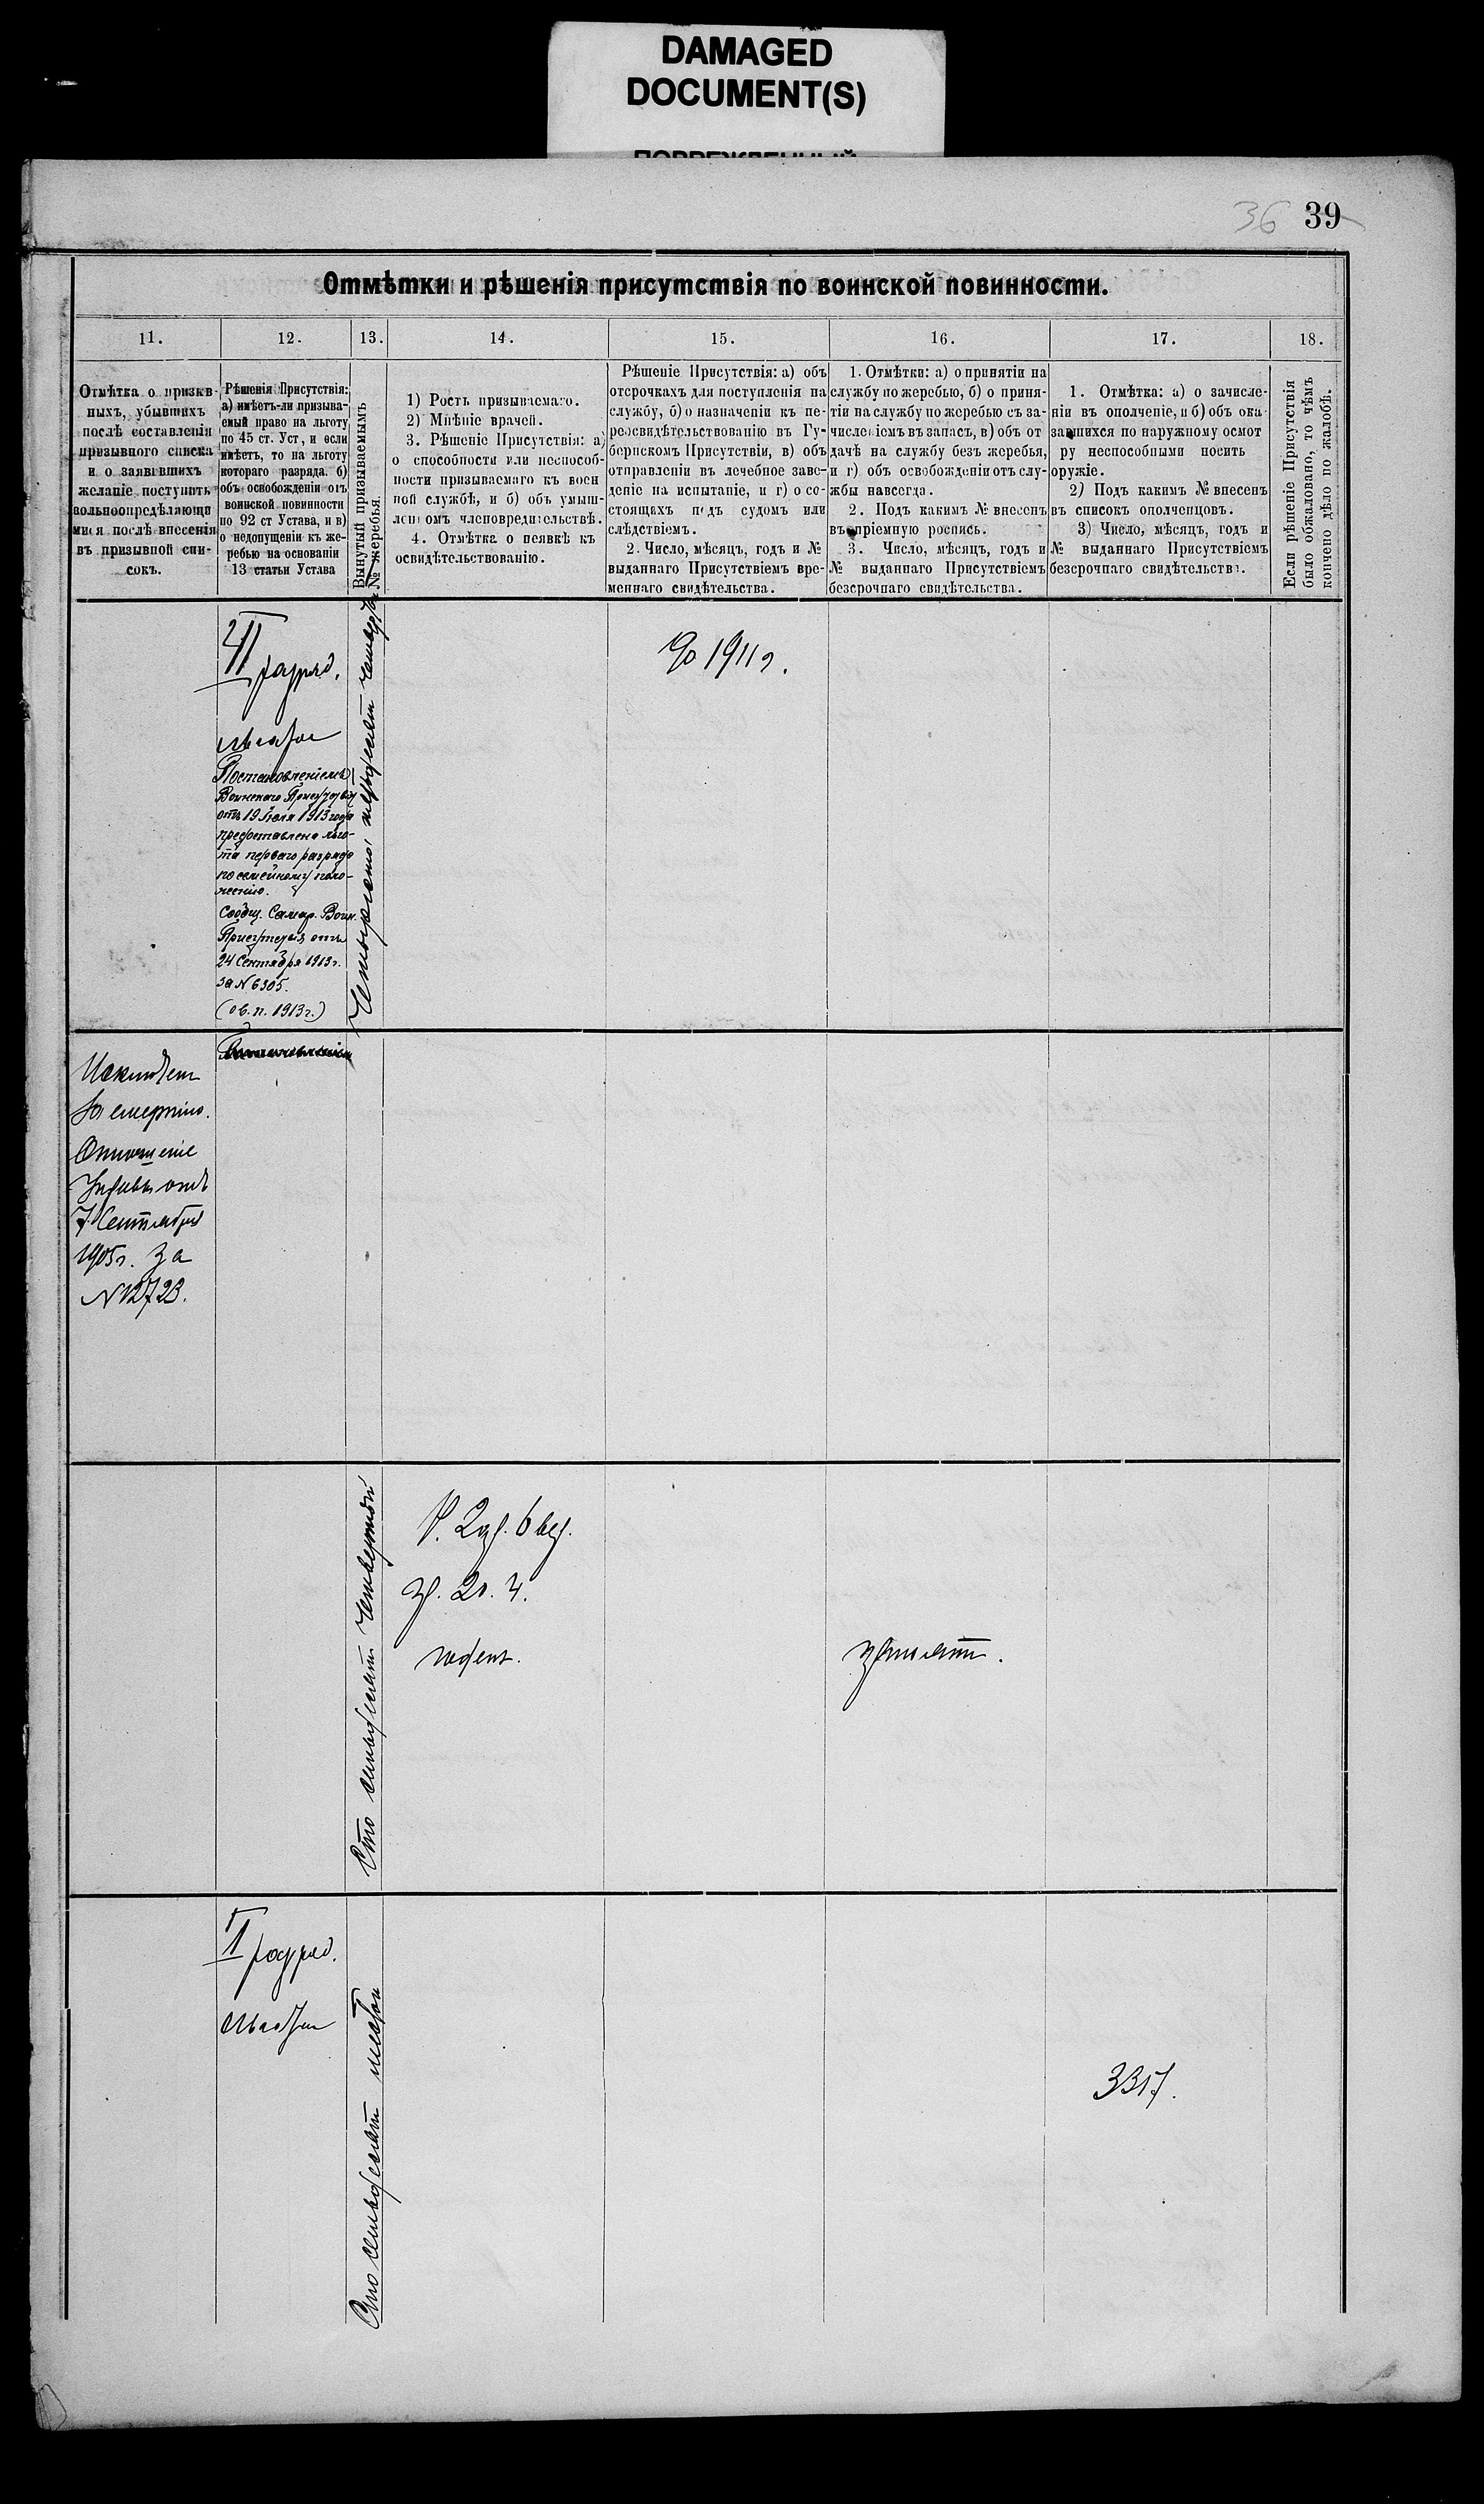 DAMAGED
DOCUMENT(S)
36 39
Отмѣтки и рѣшенія присутствія по воинской повинности.
11.
12.
13.
14.
15.
16.
17.
18.
Отмѣтка о призыв-
ныхъ, убывшихъ
послѣ составленія
призывного списка
и о заявившихъ
желаніе поступить
вольноопредѣляющи
мися послѣ внесенія
въ призывной спи-
сокъ.
Рѣшенія Присутствія:
а) имѣетъ-ли призыва-
емый право на льготу
по 45 ст. Уст, и если
имѣетъ, то на льготу
котораго разряда. б)
объ освобожденіи отъ
воинской повинности
по 92 ст Устава, и в)
о недопущеніи къ же-
ребью на основаніи
13 статьи Устава
Вынутый призываемымъ
№ жеребья.
1) Ростъ призываемаго.
2) Мнѣніе врачей.
3. Рѣшеніе Присутствія: а)
о способности или неспособ-
ности призываемаго къ воен
ной службѣ, и б) объ умыш-
ленномъ членовредительствѣ.
4. Отмѣтка о неявкѣ къ
освидѣтельствованію.
Рѣшеніе Присутствія: а) объ
отсрочкахъ для поступленія на
службу, б) о назначеніи къ пе-
реосвидѣтельствованію въ Гу-
бернскомъ Присутствіи, в) объ
отправленіи въ лечебное заве-
деніе на испытаніе, и г) о со-
стоящихъ подъ судомъ или
слѣдствіемъ.
2. Число, мѣсяцъ, годъ и №
выданнаго Присутствіемъ вре-
меннаго свидѣтельства.
1. Отмѣтки: а) о принятіи на
службу по жеребью, б) о приня-
тіи на службу по жеребью съ за-
численіемъ въ запасъ, в) объ от
дачѣ на службу безъ жеребья,
и г) объ освобожденіи отъ слу-
жбы навсегда.
2. Подъ какимъ № внесенъ
въ пріемную роспись.
3. Число, мѣсяцъ, годъ и
№ выданнаго Присутствіемъ
безсрочнаго свидѣтельства.
1. Отмѣтка: а) о зачисле-
ніи въ ополченіе, и б) объ ока
завшихся по наружному осмот
ру неспособными носить
оружіе.
2) Подъ какимъ № внесенъ
въ списокъ ополченцовъ.
3) Число, мѣсяцъ, годъ и
№ выданнаго Присутствіемъ
безсрочнаго свидѣтельства.
Если рѣшеніе Присутствія
было обжаловано, то чѣмъ
кончено дѣло по жалобѣ.
II разряд.
Постановленіемъ
Воинскаго Присутствія
отъ 19 Іюля 1913 года
предоставлена льго-
та перваго разряда
по семейному поло-
женію.
Сообщ. Самар. Воин.
Присутствія отъ
24 Сентября 1913 г.
за N 6305.
(ов. п. 1913 г.)
Четыреста пятьдесят четвертый
до 1911 г.
Исключен
за смертію.
Отношеніе
Управы отъ
7 Сентября
1905 г. за
N 12723.
Постановленіем
Сто семьдесят четвертый
Р. 2 ар. 6 вер.
гр. 20. ч.
годен.
принят.
I разряд.
Сто семьдесят шестой
3317.